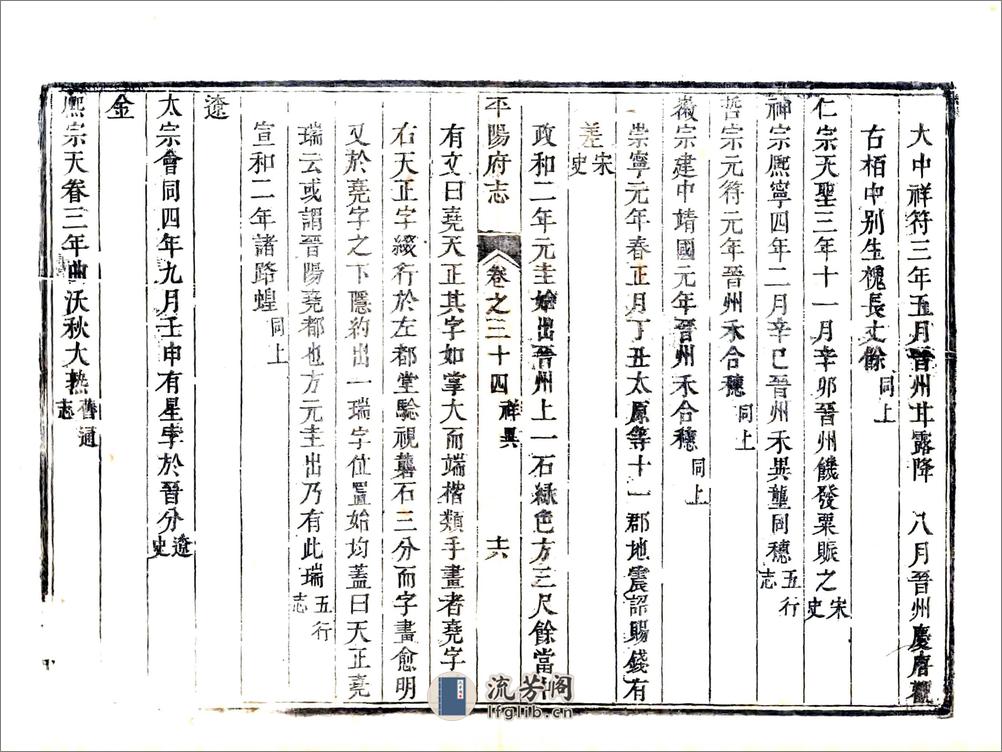 大中祥符三年五月晉州甘露降　八月晉州慶唐觀
古栢中別生槐長丈餘同上
仁宗天聖三年十一月辛卯晉州饑發粟賑之宋史
神宗熙寧四年二月辛巳晉州禾異壟同穗五行志
哲宗元符元年晉州禾合穗同上
徽宗建中靖國元年晉州禾合穗同上
崇寧元年春正月丁丑太原等十一郡地震詔賜錢有
差宋史
政和二年元圭始出晉州上一石綠色方三尺餘當
平陽府志　卷之三十四祥異　十六
有文曰堯天正其字如掌大而端楷類手畫者堯字
右天正字綴行於左都堂驗視礱石三分而字畫愈明
又於堯字之下隱約出一瑞字位置始均蓋曰天正堯
瑞云或謂晉陽堯都也方元圭出乃有此瑞五行志
宣和二年諸路蝗同上
遼
太宗會同四年九月壬申有星孛於晉分遼史
金
熙宗天眷三年曲沃秋大熟舊通志
流芳閣
lfglib.cn